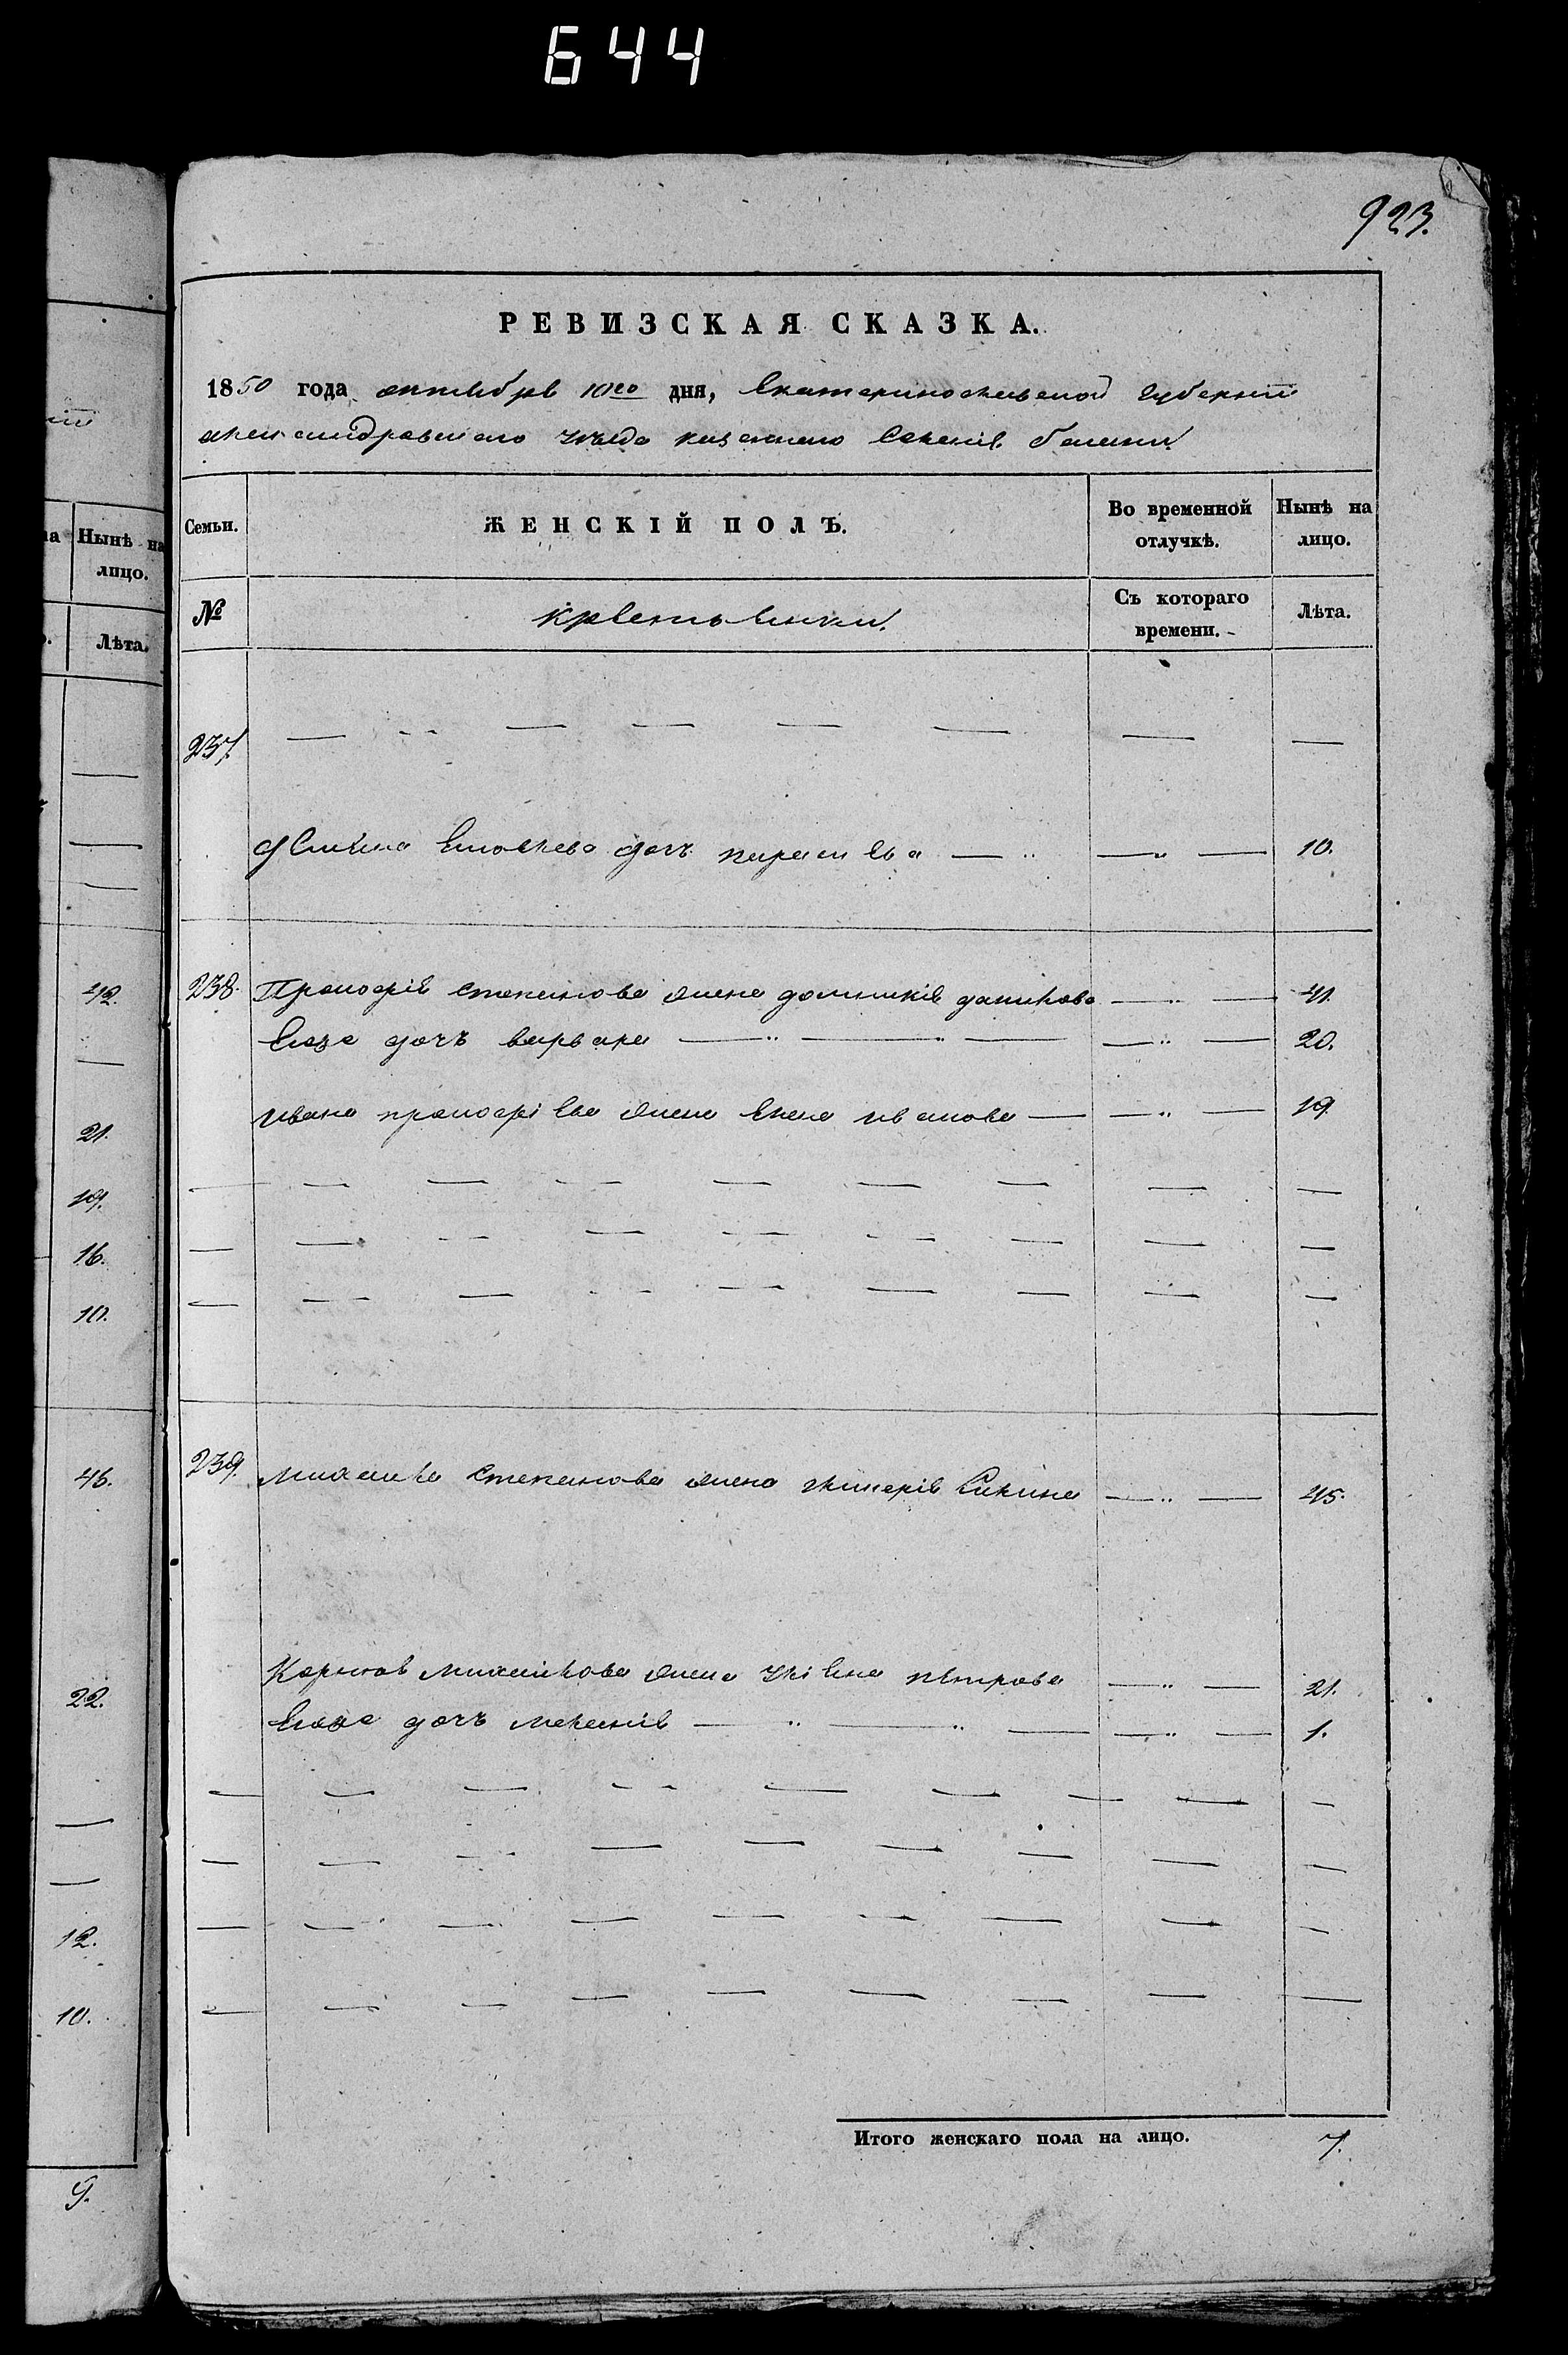 644
923.
РЕВИЗСКАЯ СКАЗКА.
1850 года октября 10го дня, Екатеринославской Губерніи
александравскаго уезда казеннаго Селенія белики
Семьи. ЖЕНСКІЙ ПОЛЪ. Во временной отлучкѣ. Нынѣ на лицо.
№ крестьянки. Съ котораго времени. Лѣта.
237.
Якимова дочь парасковья 10.
238. Прокофія степанова жена домникія данилова 41.
Его дочь варвара 20.
ивана прокофіева жена елена иванова 19.
239. михаила степанова жена гликерія 45.
Корнея михайлова жена уліяна петрова 21.
Его дочь меланія 1.
Итого женскаго пола на лицо. 7.
на Нынѣ на лицо.
Лѣта.
42.
21.
19.
16.
10.
46.
22.
12.
10.
9.